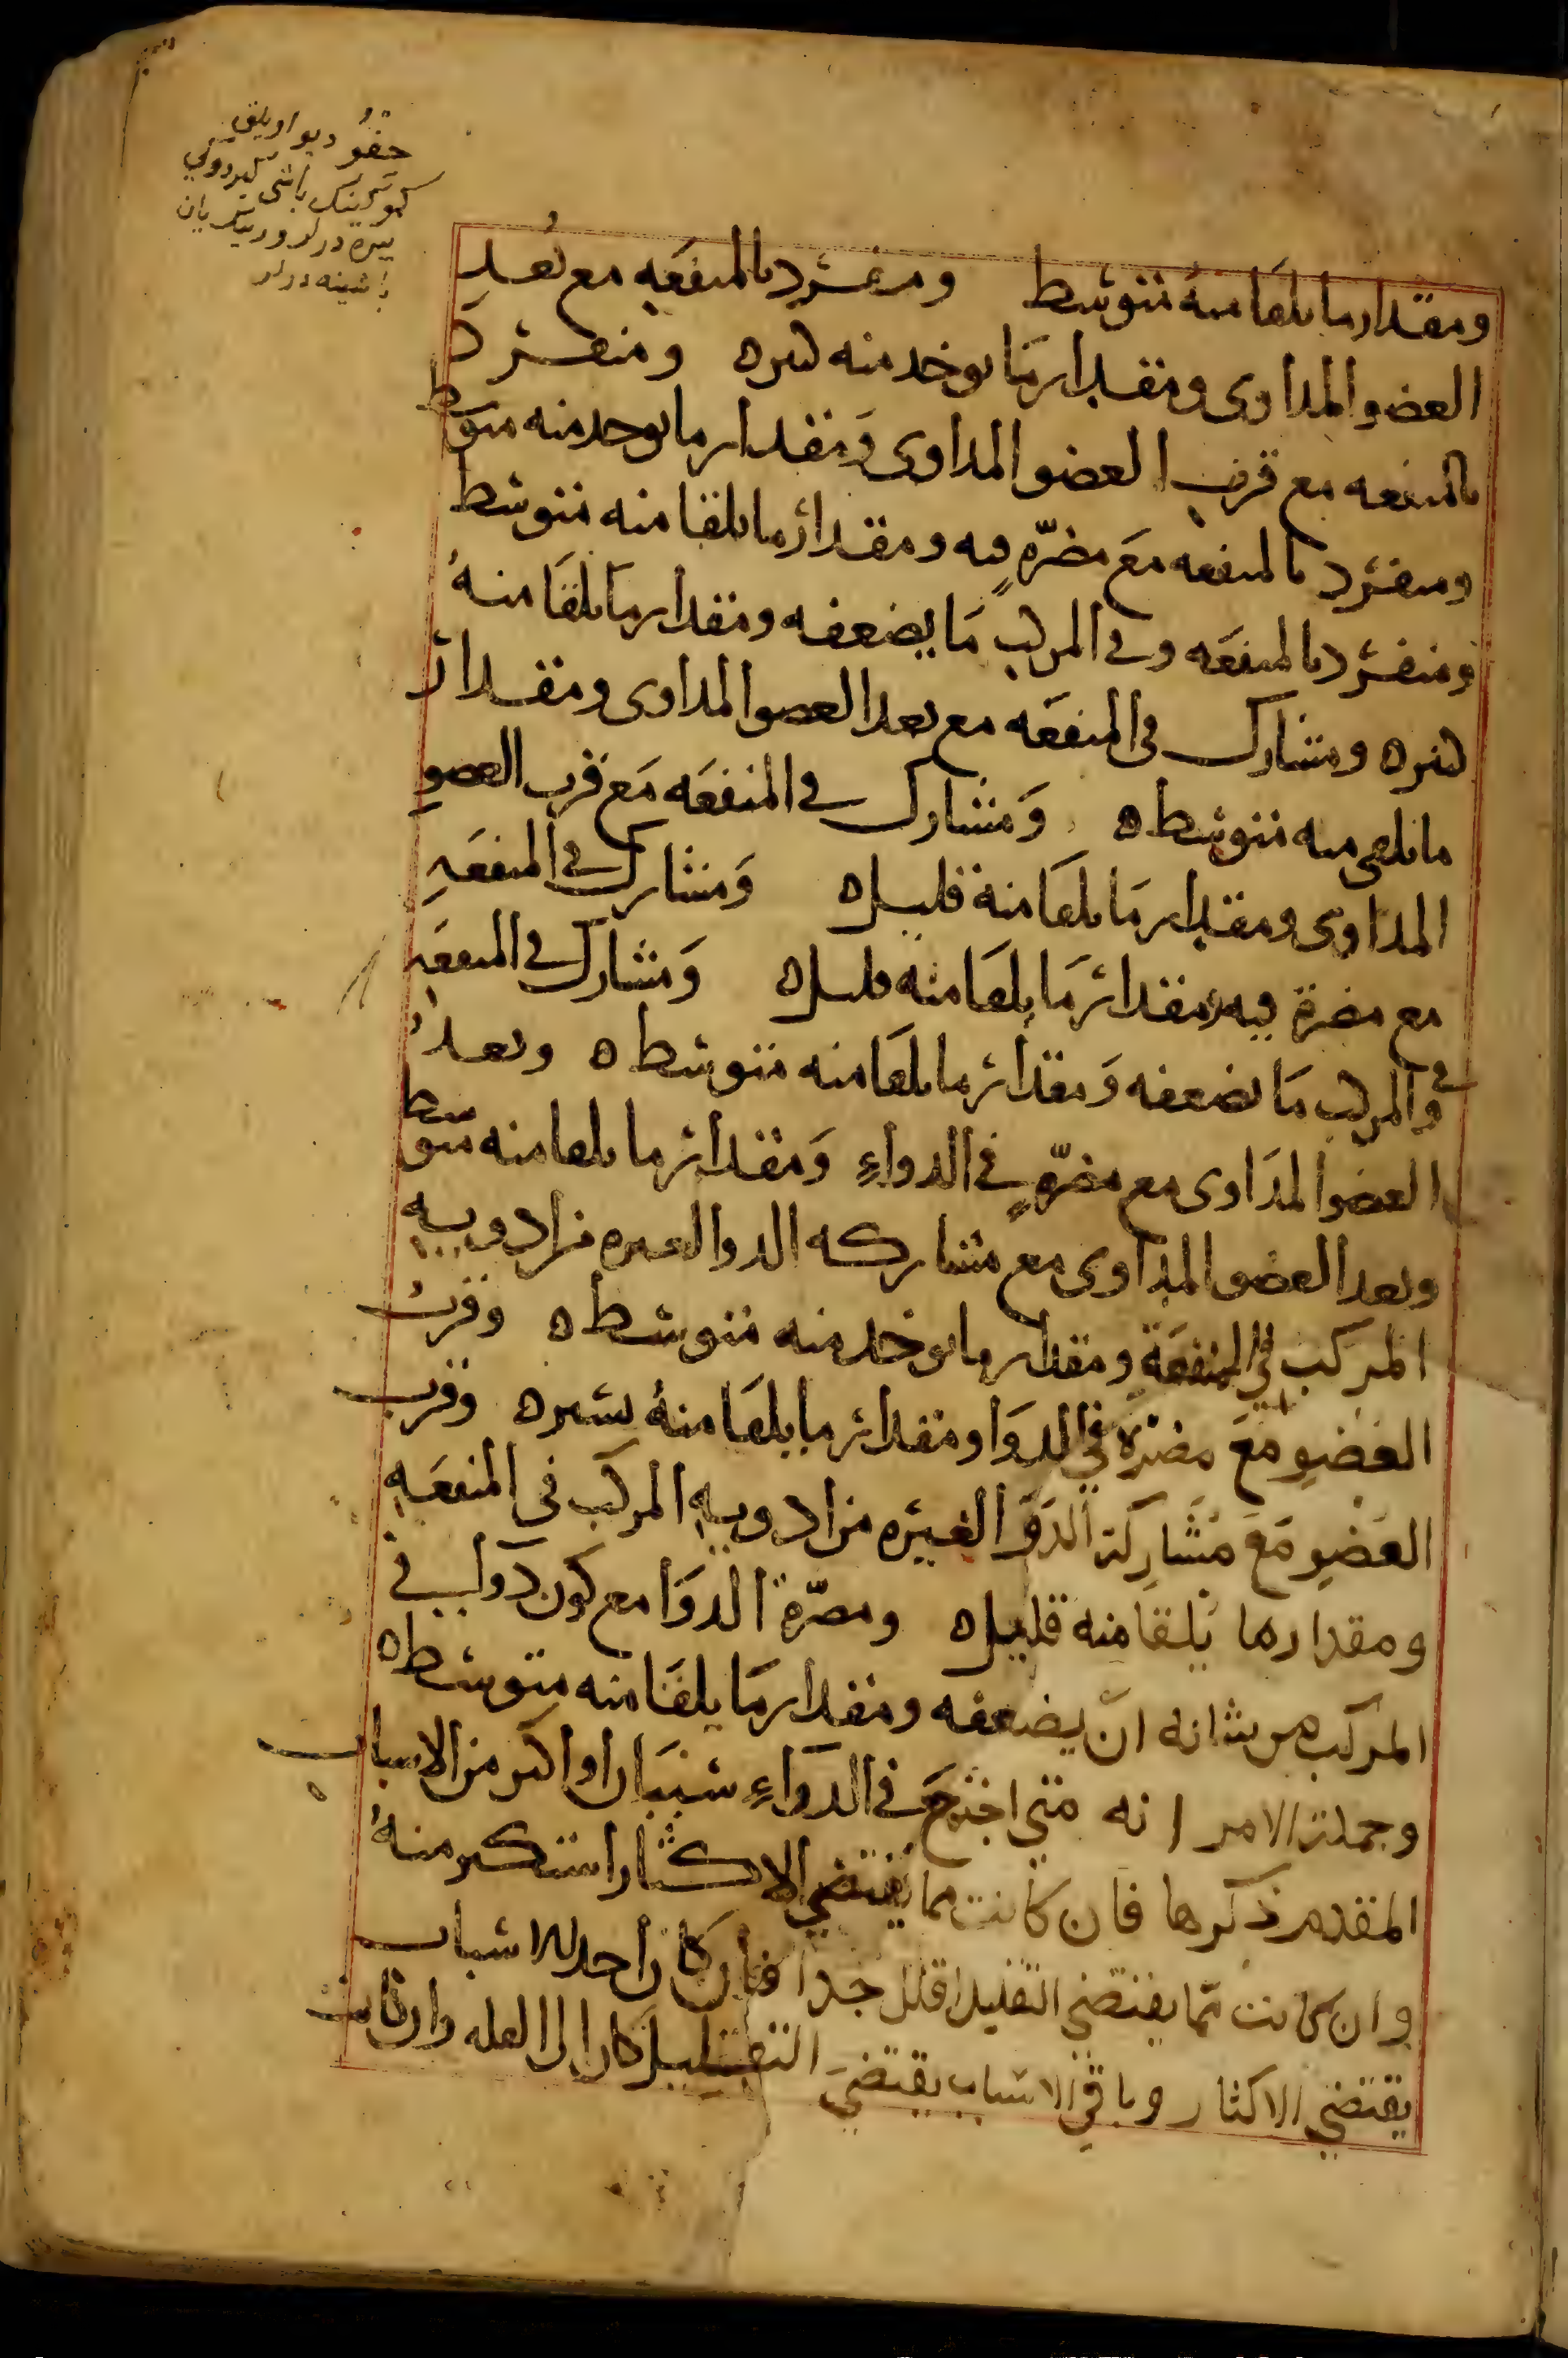 ومقدار ما يلقا منه متوسط ومنفرد بالمنفعه مع بُعد
العضو المداوى ومقدار ما يوخد منه كثيره ومنفرد
بالمنفعه مع قرب العضو المداوى ومقدار ما يوخد منه متوسط
ومنفرد بالمنفعه مع مضرّةٍ فيه ومقدار ما يلقا منه متوسط
ومنفرد بالمنفعه وفي المركب ما يضعفه ومقدار ما يلقا منه
كثيره ومشارك في المنفعه مع بعد العضو المداوى ومقدار
ما يلقى منه متوسط ه ومشارك في المنفعه مع قرب العضو
المداوى ومقدار ما يلقا منه قليل ه ومشارك في المنفعه
مع مضرة فيه ومقدار ما يلقا منه قليل ه ومشارك في المنفعه
وفي المركب ما يضعفه ومقدار ما يلقا منه متوسط ه وبعد
العضو المداوى مع مضرّةٍ في الدواءِ ومقدار ما يلقا منه متوسط
وبعد العضو المداوى مع مشاركه الدوا لغيره من ادويه
المركب في المنفعة ومقدار ما يوخد منه متوسط ه وقرب
العضوِ مع مضرة في الدوا ومقدار ما يلقا منه يسيره وقرب
العضوِ مع مشاركة الدوا لغيره من ادويه المركب في المنفعه
ومقدار ما يلقا منه قليل ه ومضرّة الدوا مع كون دوا في
المركب من شانه ان يضعفه ومقدار ما يلقا منه متوسط ه
وجملة الامر انه متي اجتمع في الدواءِ سببان او اكثر من الاسباب
المقدم ذكرها فان كانت مما يقتضي الاكثار استكثر منه
وان كانت مما يقتضي التقليل قلل جدا فان كان احد الاسباب
يقتضي الاكثار وباقي الاسباب يقتضي التقليل كان الى القله وان كانت